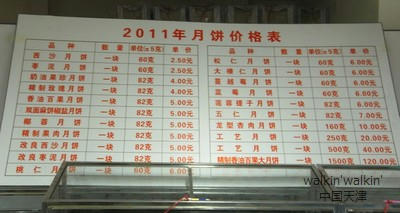 2011年月饼价格表
品种 数量 单位(±5克) 单价 品种 数量 单位(±5克) 单价
西沙月饼 一块 60克 2.50元 松仁月饼 一块 60克 6.00元
枣泥月饼 一块 60克 2.50元 大榛仁月饼 一块 60克 6.00元
奶油果珍月饼 一块 82克 4.00元 月饼 一块 60克 6.00元
精制玫瑰月饼 一块 82克 4.00元 蓝莓月饼 一块 60克 6.00元
香油百果月饼 一块 82克 5.00元 莲蓉月饼 一块 60克
双面麻饼椒盐月饼 一块 82克 5.00元 五仁月饼 一块 82克 7.00元
椰蓉月饼 一块 82克 5.00元 龙型枣肉月饼 一块 160克 10.00元
精制果肉月饼 一块 82克 5.00元 工艺月饼 一块 250克 20.00元
改良西沙月饼 一块 82克 5.00元 工艺月饼 一块 500克 40.00元
改良枣泥月饼 一块 82克 5.00元 精制香油百果大月饼 一块 1500克 120.00元
桃仁月饼 一块 60克 6.00元
walkin'walkin'
中国天津